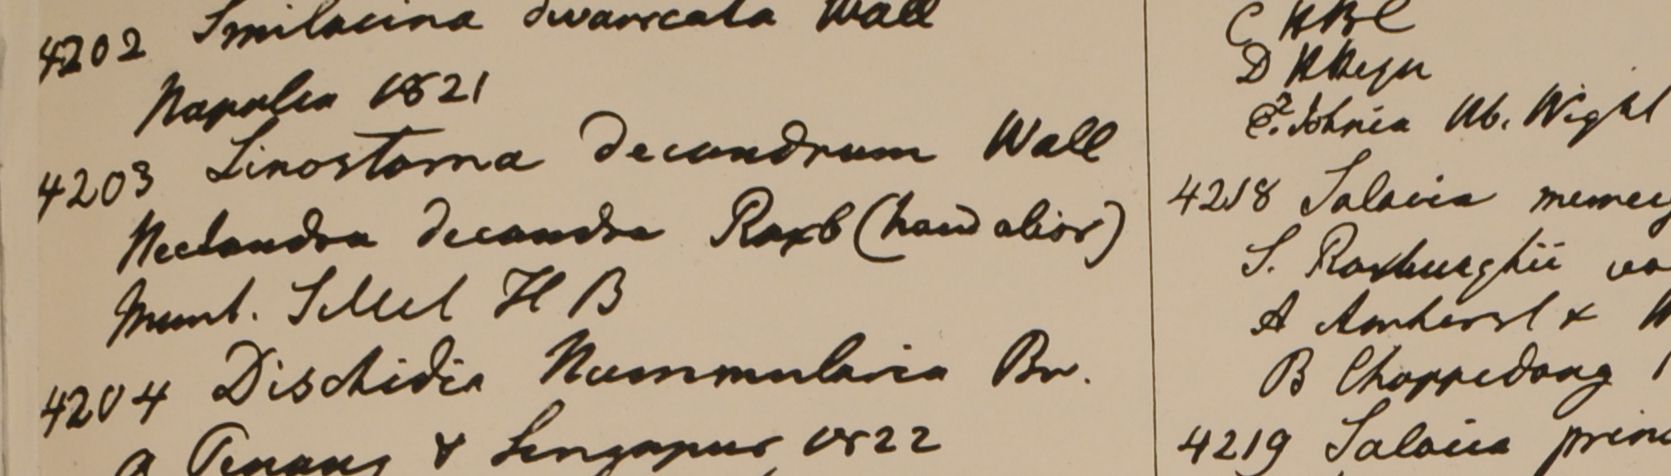 4202 Smilacina divaricata Wall
Napalia 1821
4203 Linostoma decandrum Wall
Nectandra decandra Roxb (haud alior)
Mont. Sillet H B
4204 Dischidia Nummularia Br.
A Penang & Singapur 1822
C HBC
D H
E. Wight
4218 Salacia memecy
S. Roxburghii va
A Amherst &
B Chappedong
4219 Salacia prin